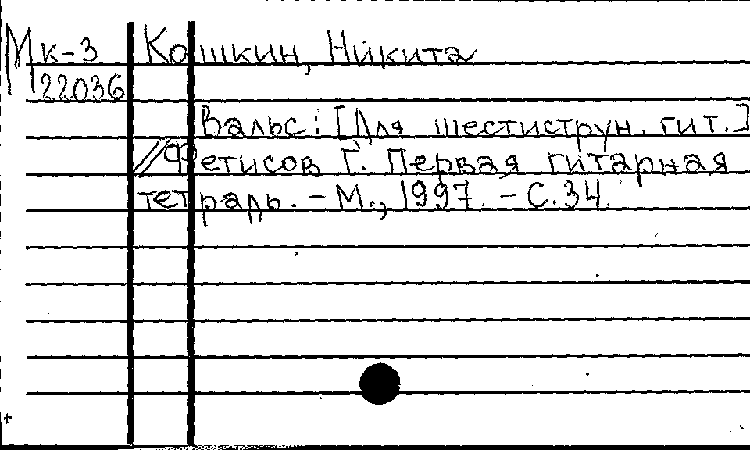 Мк-3 Кошкин, Никита
122036
Вальс: [Для шестиструн. гит.]
//Фетисов Г. Первая гитарная
тетрадь. - М., 1997. - С.34.